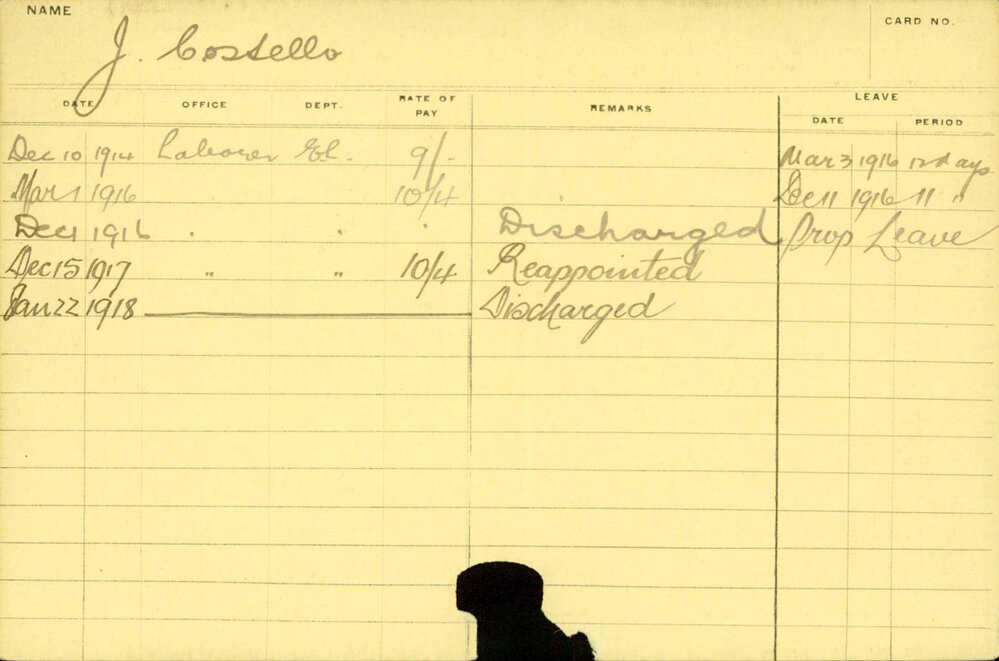 NAME
CARD NO.
J. Costello
DATE OFFICE DEPT. RATE OF PAY REMARKS LEAVE
DATE PERIOD
Dec 10 1914 Laborer El. 9/- Mar 3 1916 12 days
Mar 1 1916 10/4 Dec 11 1916 11 "
Dec 11 1916 " " " Discharged Prop Leave
Dec 15 1917 " " 10/4 Reappointed
Jan 22 1918 Discharged